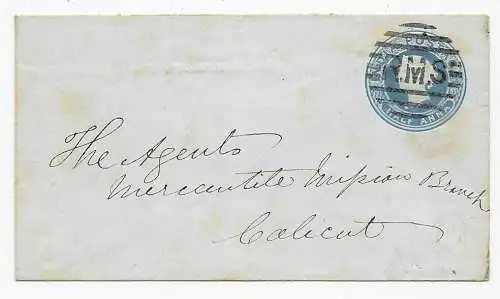 POS
R.M.S
HALF ANNA
The Agents
Mercantile Mission Branch
Calicut